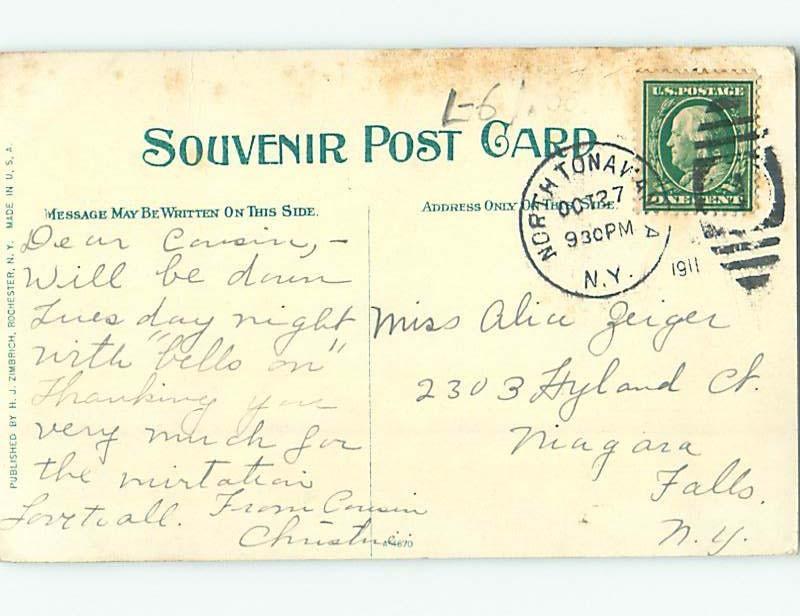 L-6
SOUVENIR POST CARD
U.S. POSTAGE
ONE CENT
NORTH TONAWANDA
OCT 27
930PM
N.Y.
1911
MESSAGE MAY BE WRITTEN ON THIS SIDE.
ADDRESS ONLY ON THIS SIDE.
PUBLISHED BY H. J. ZIMBRICH, ROCHESTER, N. Y. MADE IN U. S. A.
Dear Cousin,-
Will be down
Tuesday night
with "bells on"
Thanking you
very much for
the invitation
Love to all. From Cousin
Christina
Miss Alice Zeiger
2303 Hyland Ct.
Niagara
Falls.
N.Y.